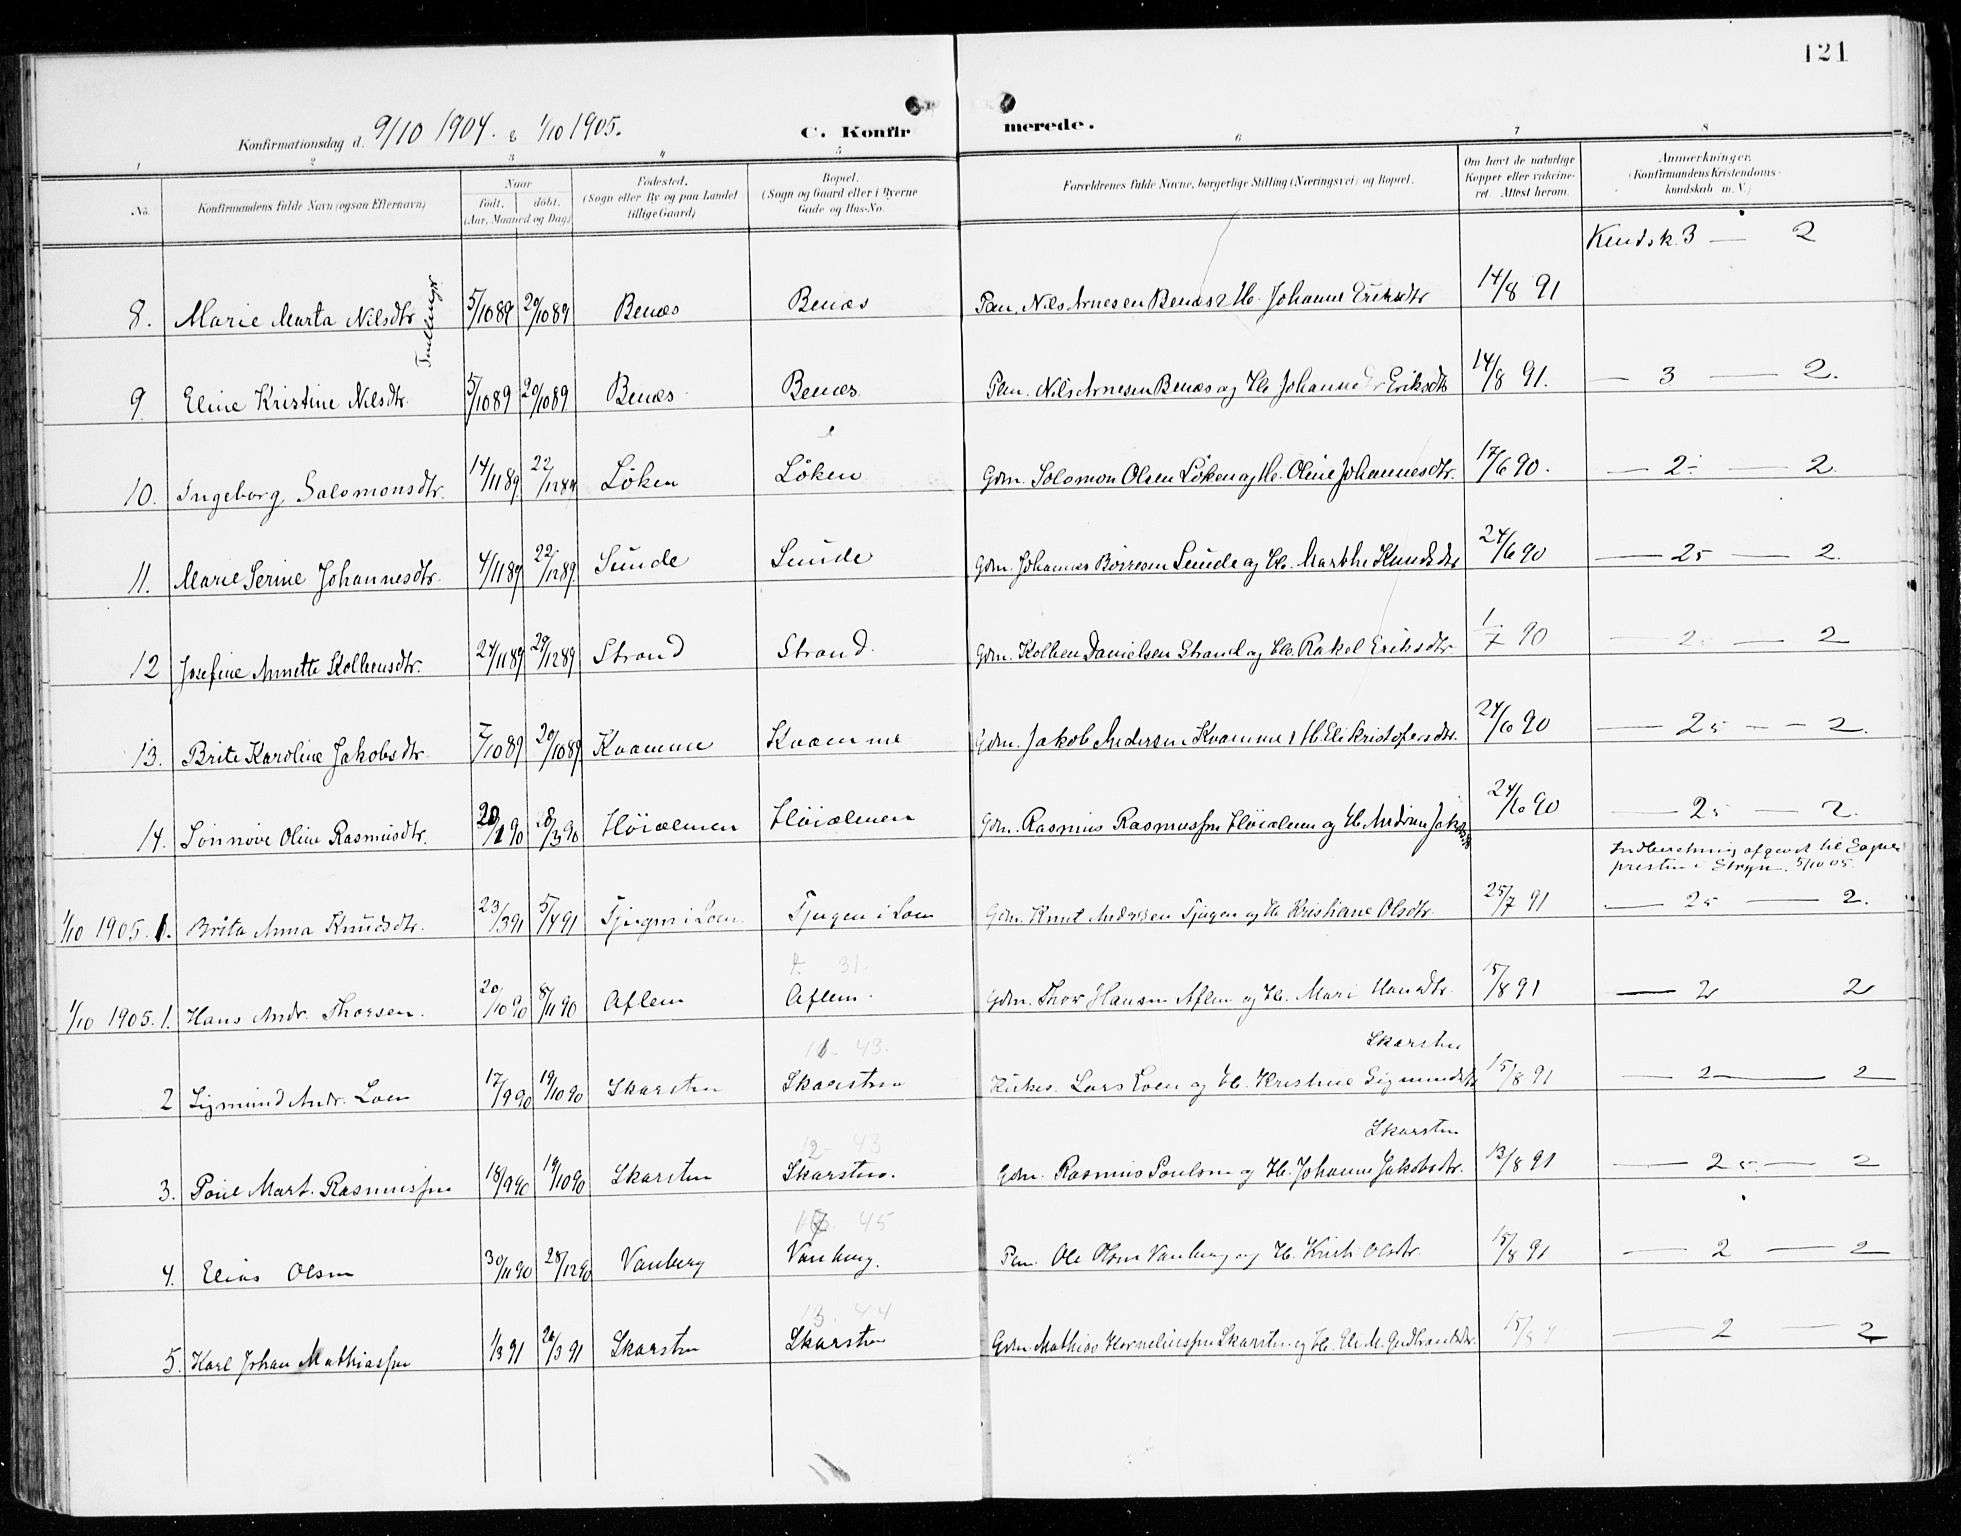 121
Konfirmationsdag d. 9/10 1904. & 1/10 1905. C. Konfirmerede.
1 2 3 4 5 6 7 8
No. Konfirmandens fulde Navn (ogsaa Efternavn) Naar født. døbt. (Aar, Maaned og Dag) Fødested. (Sogn eller By og paa Landet tillige Gaard) Bopæl. (Sogn og Gaard eller i Byerne Gade og Hus-No. Forældrenes fulde Navne, borgerlige Stilling (Næringsvei) og Bopæl. Om havt de naturlige Kopper eller vakcineret. Attest herom. Anmærkninger. (Konfirmandens Kristendomskundskab m. V.)
Kundsk. 3 — 2
8. Marie Marta Nilsdtr. Tvillinger 5/10 89 20/10 89 Benæs Benæs Pan. Nils Arnesen Benæs & H. Johanne Eriksdtr 14/8 91
9. Eline Kristine Nilsdtr. 5/10 89 20/10 89 Benæs Benæs Plm. Nils Arnesen Benæs og H. Johanne Eriksdtr 14/8 91. — 3 — 2.
10. Ingeborg Salomonsdtr. 14/11 89 22/12 89 Löken Löken Gdm. Solomon Olsen Löken og H. Oline Johannesdtr. 17/6 90. — 2- — 2.
11. Marie Serine Johannesdtr. 4/11 89 22/12 89 Sunde Sunde Gdm. Johannes Börresen Sunde og H. Marthe Knudsdtr 24/6 90 — 25 — 2.
12 Josefine Annette Kolbensdtr. 24/11 89 29/12 89 Strand Strand. Gdm. Kolben Danielsen Strand og H. Rakel Eriksdtr. 1/7 90 — 25 — 2
13. Brite Karoline Jakobsdtr. 7/10 89 20/10 89 Kvamme Kvamme Gdm. Jakob Andersen Kvamme & H. Eli Kristofersdtr. 24/6 90 — 25 — 2.
14. Sönnöve Oline Rasmusdtr. 20/1 90 8/3 90 Höiælmen Höiælmen Gdm. Rasmus Rasmussen Höiælmen og H. Andrine Jakobsdtr 24/6 90 — 25 — 2.
Indberetning afgivet til Sogne
presten i Stryn. 5/10 05.
1/10 1905. 1. Brita Anna Knudsdtr. 23/3 91 5/4 91 Tjugen i Loen Tjugen i Loen Gdm. Knut Andersen Tjugen og H. Kristiane Olsdtr. 25/7 91 — 25 — 2.
4. 31.
1/10 1905. 1. Hans Andr. Thorsen. 20/10 90 8/11 90 Aflem Aflem. Gdm. Thor Hansen Aflem og H. Mari Hansdtr. 15/8 91 — 2 2
11. 43. Skarsten
2 Sigmund Andr. Loen 17/9 90 19/10 90 Skarsten Skarsten Kirkes. Lars Loen og H. Kristine Sigmundsdtr 15/8 91 — 2 — 2
12 43 Skarsten
3. Poul Mart. Rasmussen 18/9 90 19/10 90 Skarsten Skarsten. Gdm. Rasmus Poulsen og H. Johanne Jakobsdtr. 13/8 91 — 25 — 2
17. 45
4. Elias Olsen 30/11 90 28/12 90 Vanberg Vanberg. Plm. Ole Olsen Vanberg og H. Kirsti Olsdtr. 15/8 91 — 2 — 2
13. 44
5. Karl Johan Mathiassen 1/3 91 26/3 91 Skarsten Skarsten Gdm. Mathias Korneliussen Skarsten og H. Eli M. Gudbrandsdtr. 15/8 — 2 — 2